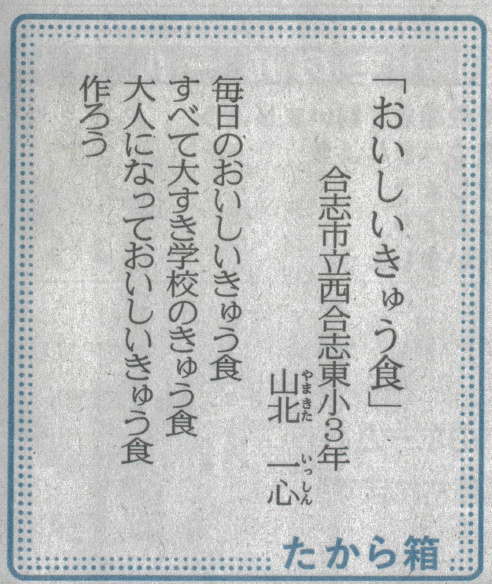 「おいしいきゅう食」
合志市立西合志東小3年
山北 一心
やまきた いっしん
毎日のおいしいきゅう食
すべて大すき学校のきゅう食
大人になっておいしいきゅう食
作ろう
たから箱